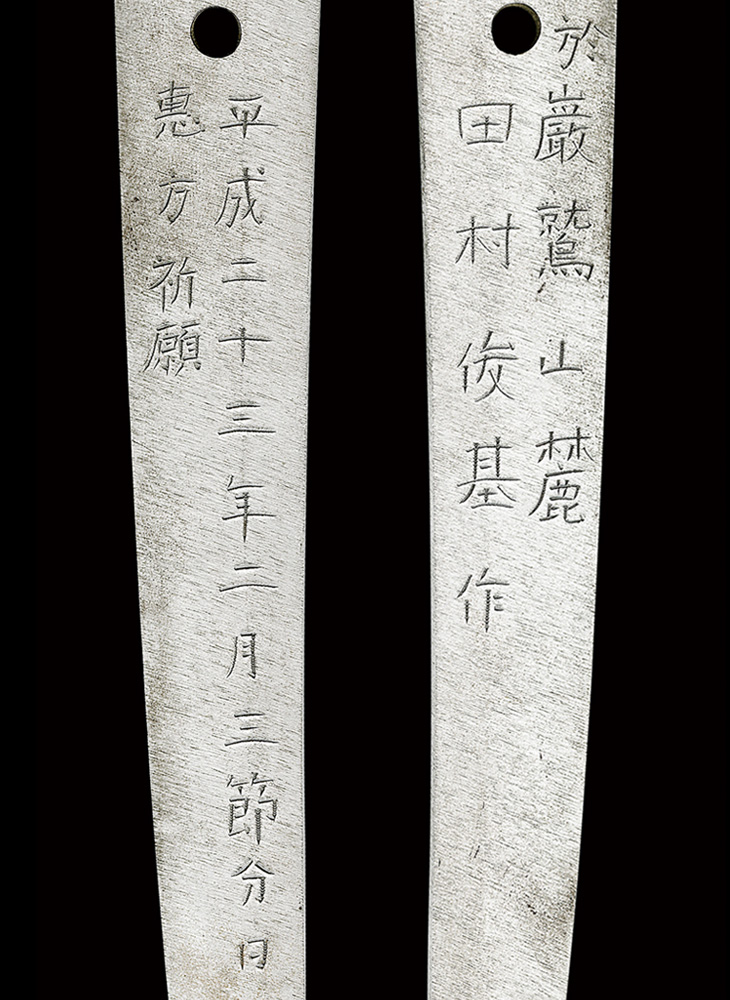 於巌鷲山麓
田村俊基作
平成二十三年二月三節分日
惠方祈願